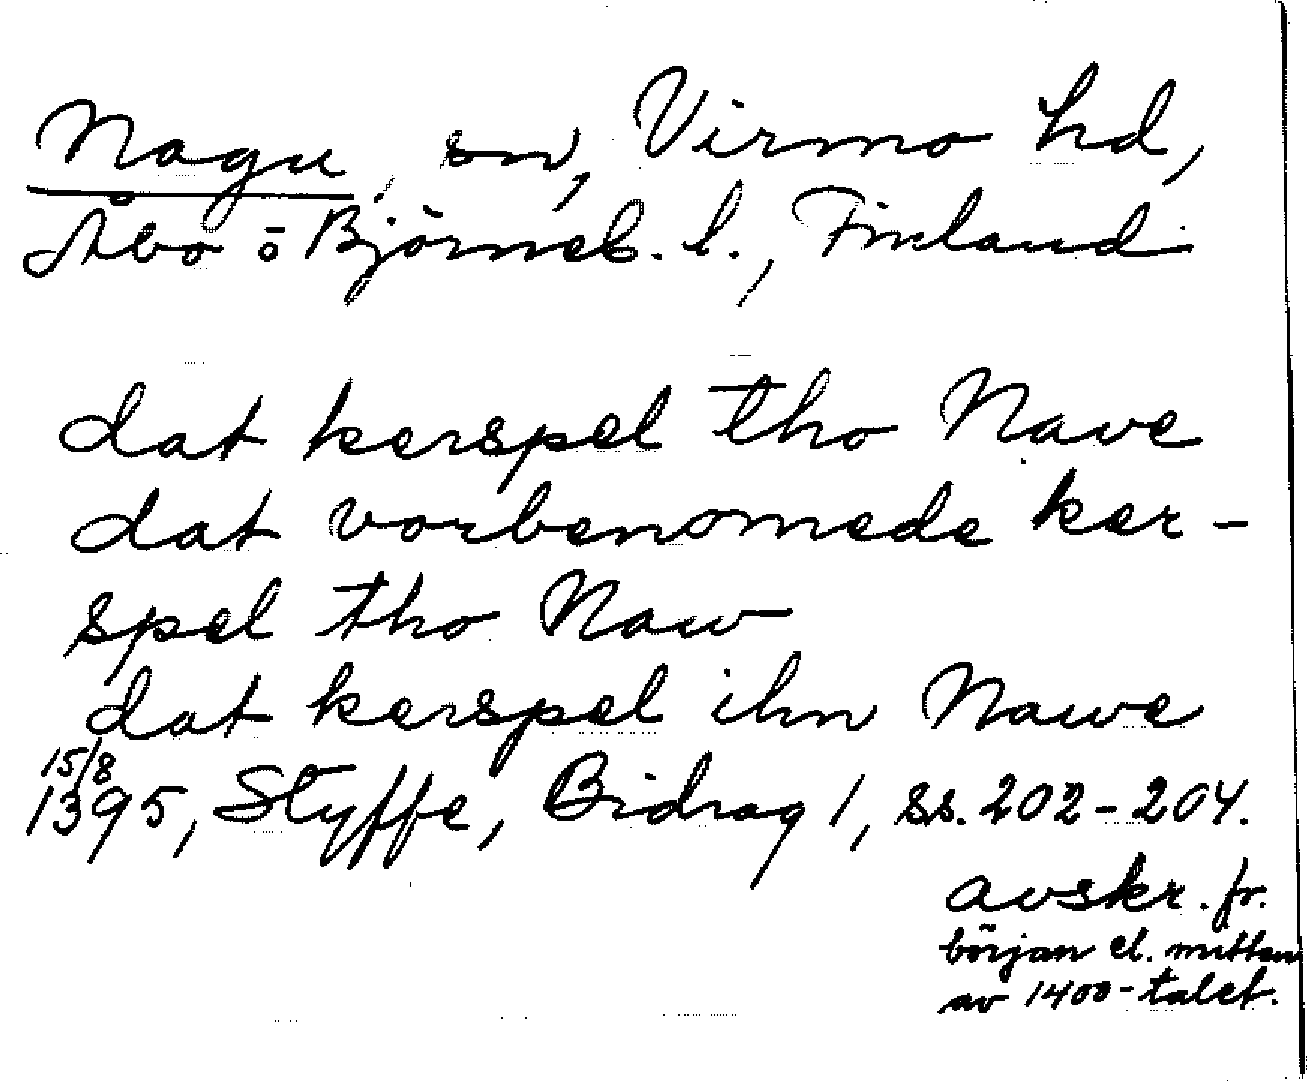 Nagu, sn, Virmo hd,
Åbo o Björneb. l., Finland
dat kerspel tho Nave
dat vorbenomede ker-
spel tho Naw
dat kerspel ihn Nawe
15/8
1395, Styffe, Bidrag 1, ss. 202-204.
avskr. fr.
början el. mitten
av 1400-talet.